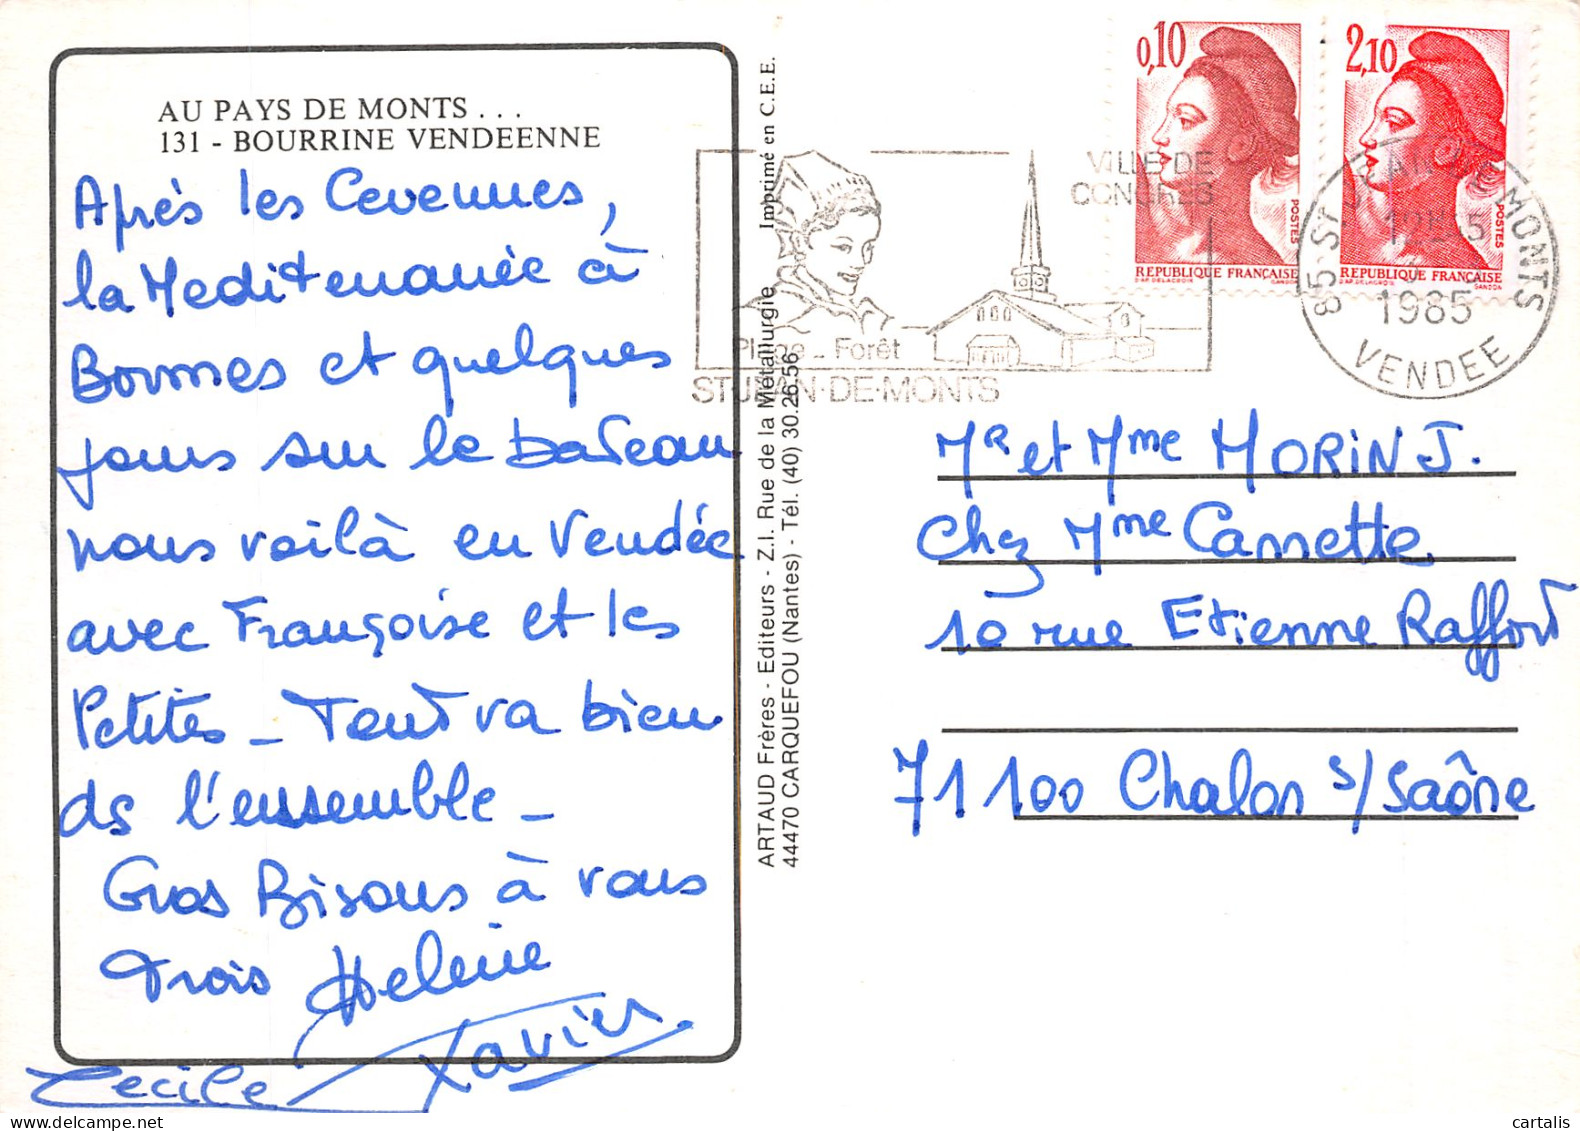 AU PAYS DE MONTS . . .
131 - BOURRINE VENDEENNE
Après les Cevennes,
la Meditenanée à
Bormes et quelques
jours sur le bateau
nous voilà en Vendée
avec Françoise et les
Petites _ Tout va bien
ds l'ensemble _
Gros Bisous à vous
trois Helene
Xavier
Cecile
Imprimé en C.E.E.
ARTAUD Frères - Editeurs - Z.I. Rue de la Métallurgie
44470 CARQUEFOU (Nantes) - Tél. (40) 30.26.56
VILLE DE
CONGRES
Plage _ Forêt
ST-JEAN-DE-MONTS
0,10
POSTES
REPUBLIQUE FRANÇAISE
D'AP. DELACROIX GANDON
2,10
POSTES
REPUBLIQUE FRANÇAISE
D'AP. DELACROIX GANDON
85 - ST JEAN DE MONTS
1985
VENDEE
Mr et Mme MORIN J.
Chez Mme Cannette
10 rue Etienne Raffort
71100 Chalon s/Saône
cartalis